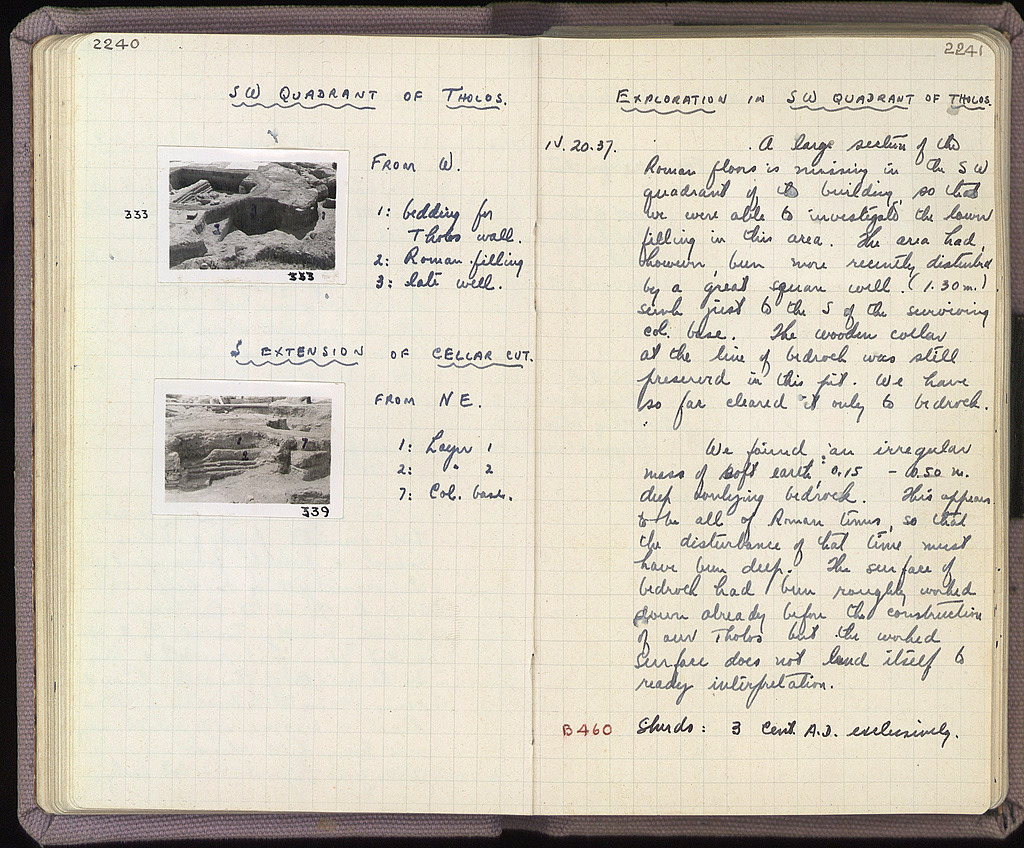 2240
SW QUADRANT OF THOLOS.
333
333
FROM W.
1: bedding for
Tholos wall.
2: Roman filling
3: late well.
S EXTENSION OF CELLAR CUT.
339
FROM NE.
1: Layer 1
2: " 2
7: Col. base.
2241
EXPLORATION IN SW QUADRANT OF THOLOS.
IV.20.37. A large section of the
Roman floors is missing in the SW
quadrant of the building, so that
we were able to investigate the lower
filling in this area. The area had,
however, been more recently disturbed
by a great square well (1.30 m.)
sunk just to the S of the surviving
col. base. The wooden collar
at the line of bedrock was still
preserved in this pit. We have
so far cleared it only to bedrock.
We found an irregular
mass of soft earth, 0.15 - 0.50 m.
deep overlying bedrock. This appears
to be all of Roman times, so that
the disturbance of that time must
have been deep. The surface of
bedrock had been roughly worked
down already before the construction
of our Tholos but the worked
surface does not lend itself to
ready interpretation.
B460 Sherds: 3 cent. A.D. exclusively.